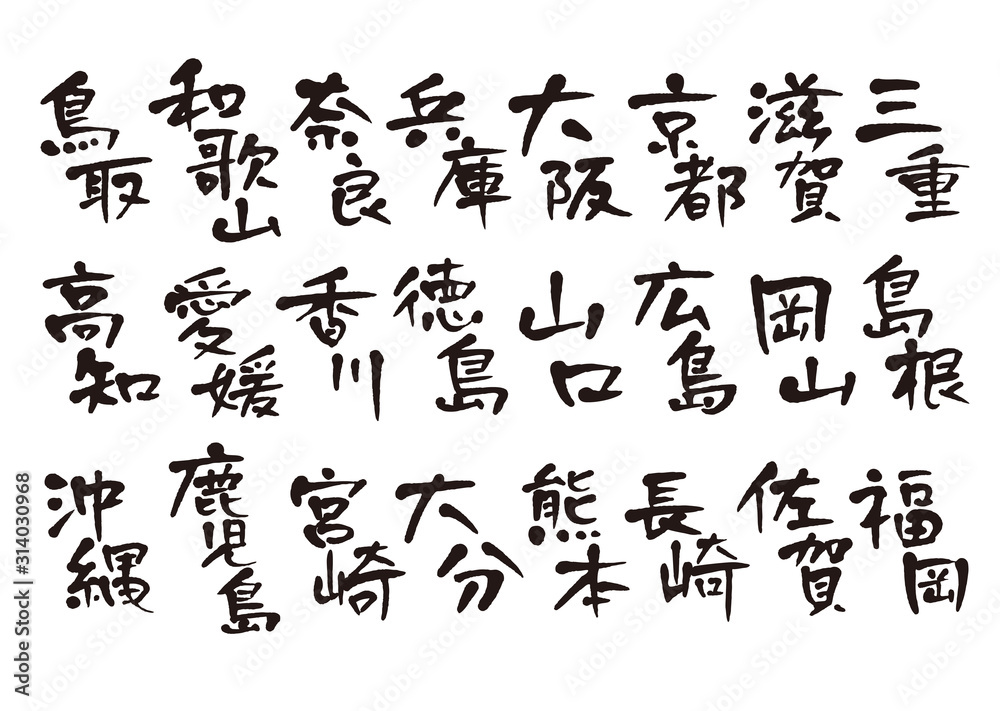 三重
滋賀
京都
大阪
兵庫
奈良
和歌山
鳥取
島根
岡山
広島
山口
徳島
香川
愛媛
高知
福岡
佐賀
長崎
熊本
大分
宮崎
鹿児島
沖縄
Adobe Stock | #314030968